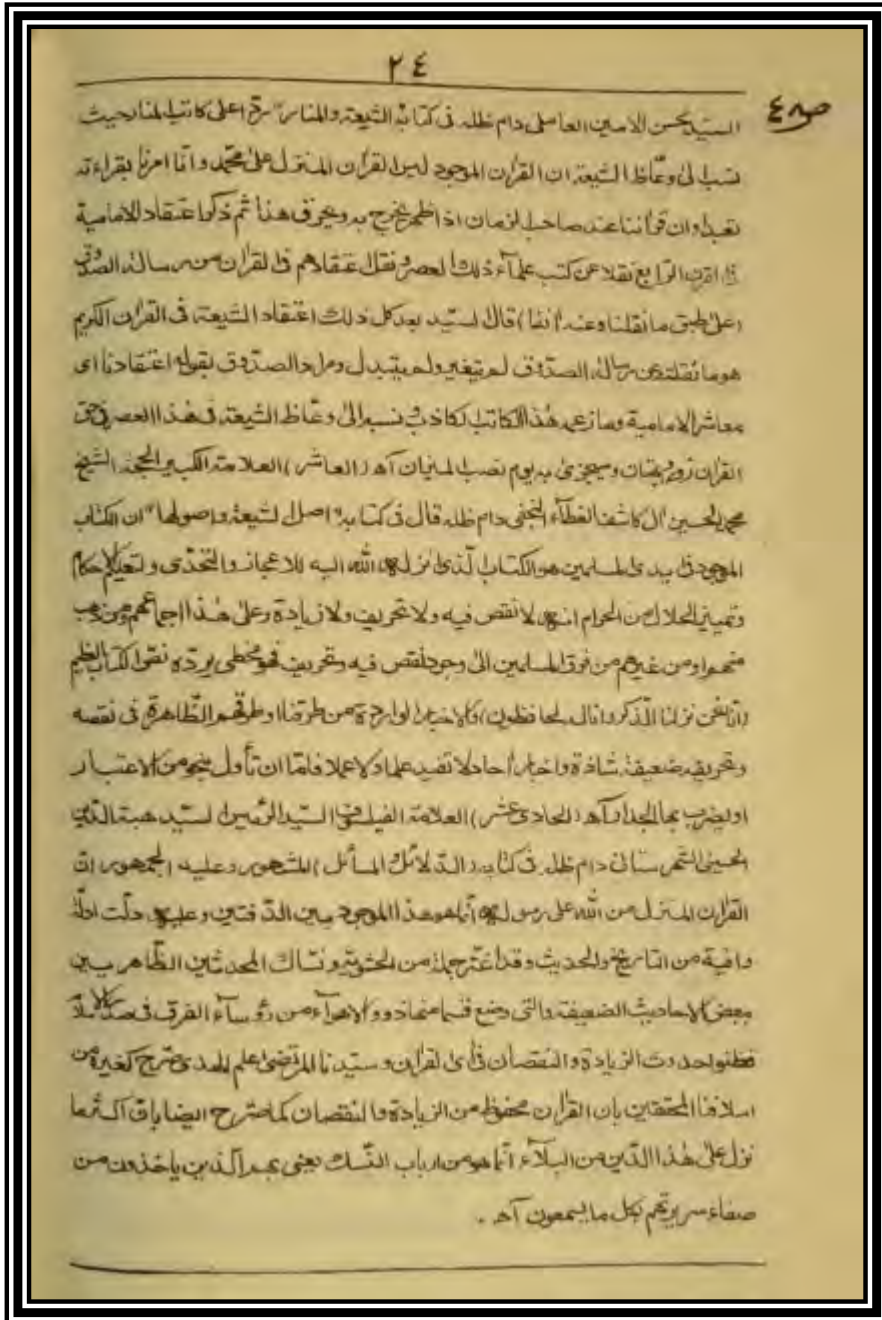 ٢٤
ص٤٨
السيد محسن الامين العاملى دام ظله فى كتابه الشيعة والمنار "رح اعلى كاتب المنار حيث
نسب الى وعّاظ الشيعة ان القران الموجود ليس القران المنزل على محمّد وانّا امرنا بقراءته
تعبدا وان قراننا عند صاحب الزمان اذا ظهر يخرج به ويحرق هذا ثم ذكر اعتقاد الامامية
فى القرن الرابع نقلا عن كتب علمآء ذلك العصر ونقل اعتقادهم فى القران من رسالة الصدوق
(على طبق ما نقلنا عنه انفا) قال السيد بعد كل ذلك اعتقاد الشيعة فى القران الكريم
هو ما نقلته عن رسالة الصدوق لم يتغير ولم يتبدل ومراد الصدوق بقوله اعتقادنا اى
معاشر الامامية وما زعمه هذا الكاتب لكاذب ونسبه الى وعّاظ الشيعة فى هذا العصر فى حق
القران زور وبهتان وسيجزى به يوم نصب الميزان آه (العاشر) العلامة الكبير الحجة الشيخ
محمد الحسين ال كاشف الغطآء النجفى دام ظله قال فى كتابه "اصل الشيعة واصولها" ان الكتاب
الموجود فى ايدى المسلمين هو الكتاب الّذى انزله الله اليه للاعجاز والتحدّى ولتعليم الاحكام
وتمييز الحلال من الحرام انه لا نقص فيه ولا تحريف ولا زيادة وعلى هذا اجماعهم ومن ذهب
منهم او من غيرهم من فرق المسلمين الى وجود نقص فيه وتحريف فهو مخطى يردّه نصّ الكتاب العظيم
(انا نحن نزلنا الذكر وانا له لحافظون) والاخبار الواردة من طرقنا او طرقهم الظاهرة فى نقصه
وتحريفه ضعيفة شاذة واخبار احاد لا تفيد علما ولا عملا فامّا ان تأول بنحو من الاعتبار
او يضرب بها الجدار آه (الحادى عشر) العلامة الفيلسوف السيد السيّد هبة الدين
الحسينى الشهرستانى دام ظله فى كتابه (الدلائل والمسائل) المشهور وعليه الجمهور ان
القران المنزل من الله على رسوله انّما هو هذا الموجود بين الدّفتين وعليه دلّت ادلّة
وافية من التاريخ والحديث وقد اغتر جملة من الحشوية ونسّاك المحدثين الظّاهر بين
بعض الاحاديث الضعيفة والتى وضع قسما منها ذوو الاهواء من رؤسآء الفرق فى صدر الاسلام
فظنوا حدوث الزيادة والنقصان فى اى القران وسيّدنا المرتضى علم الهدى صرّح كغيره من
اسلافنا المحققين بان القران محفوظ من الزيادة والنقصان كما صرّح ايضا بان اكثر ما
نزل على هذا الدّين من البلآء انّما هو من ارباب النسك يعنى بهم الّذين ياخذون من
صفاء سريرتهم بكل ما يسمعون آه .